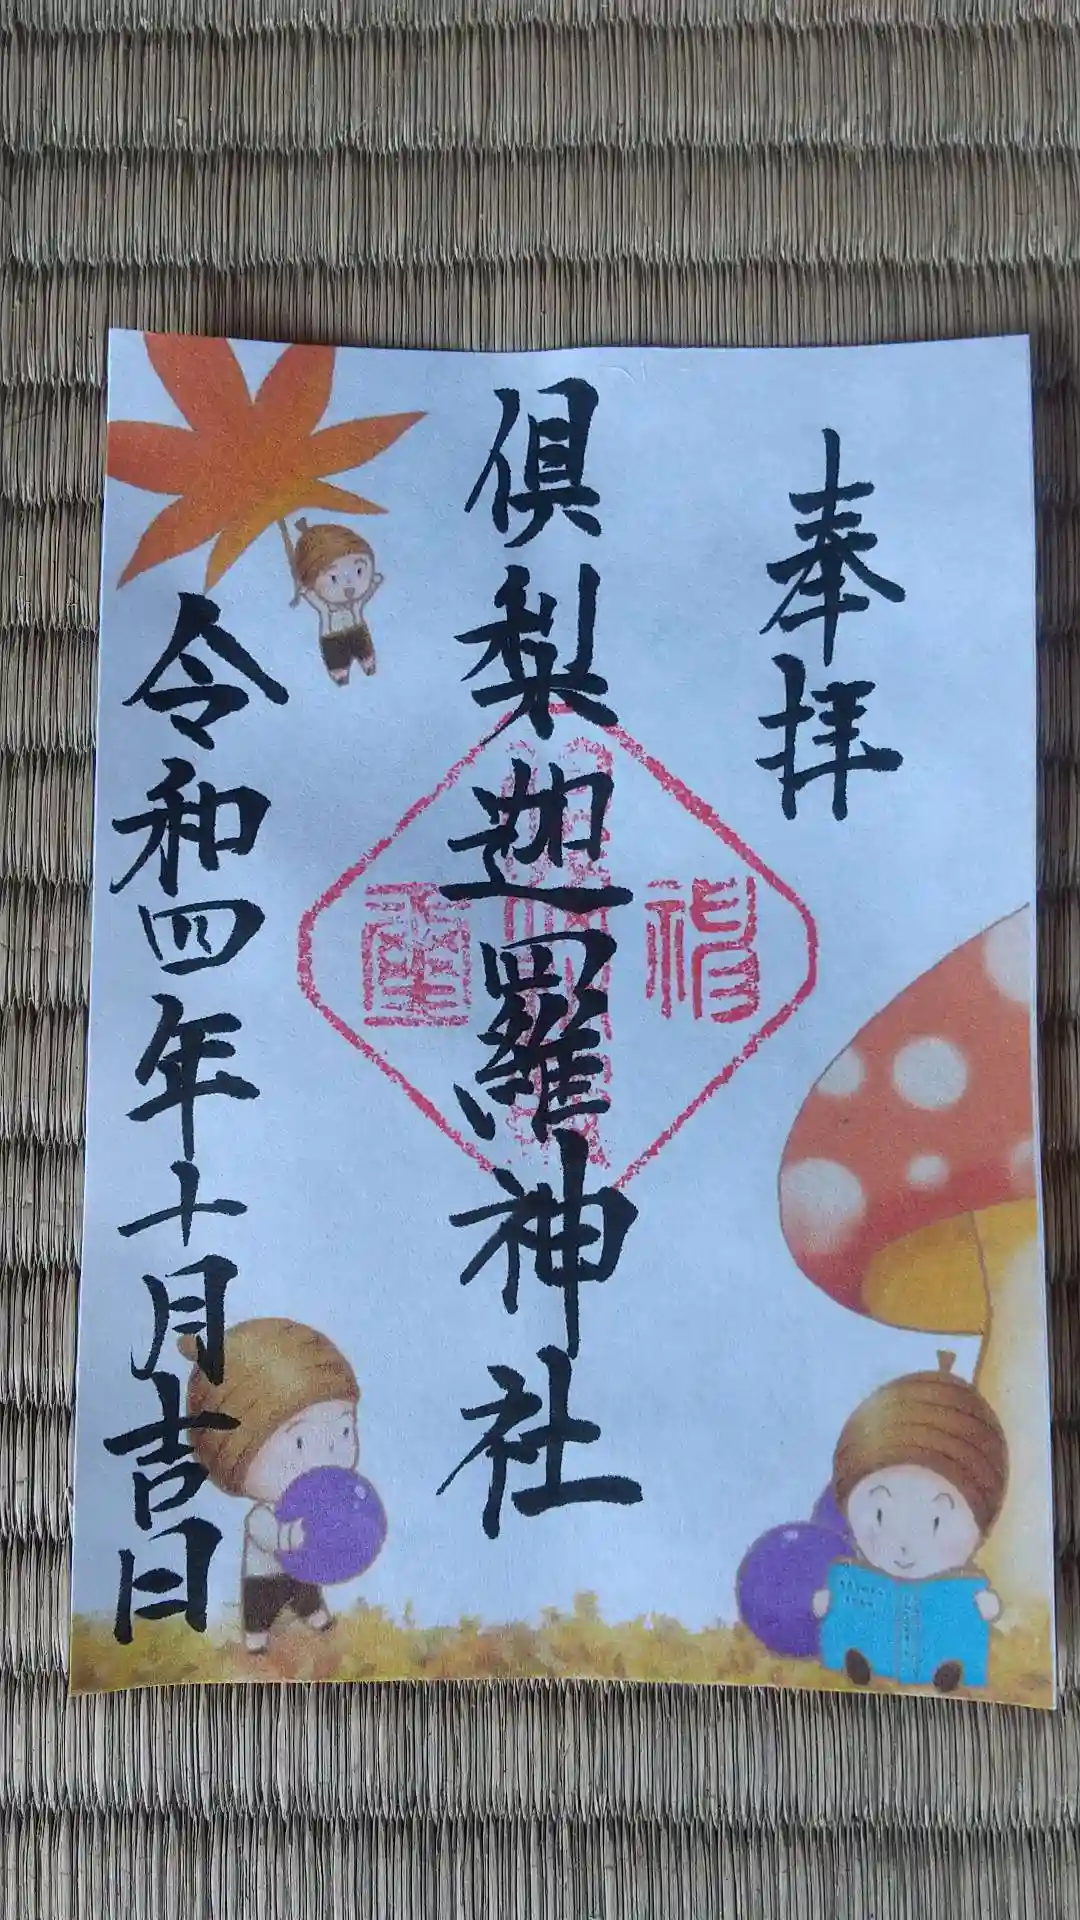 奉拝
倶梨迦羅神社
令和四年十月吉日